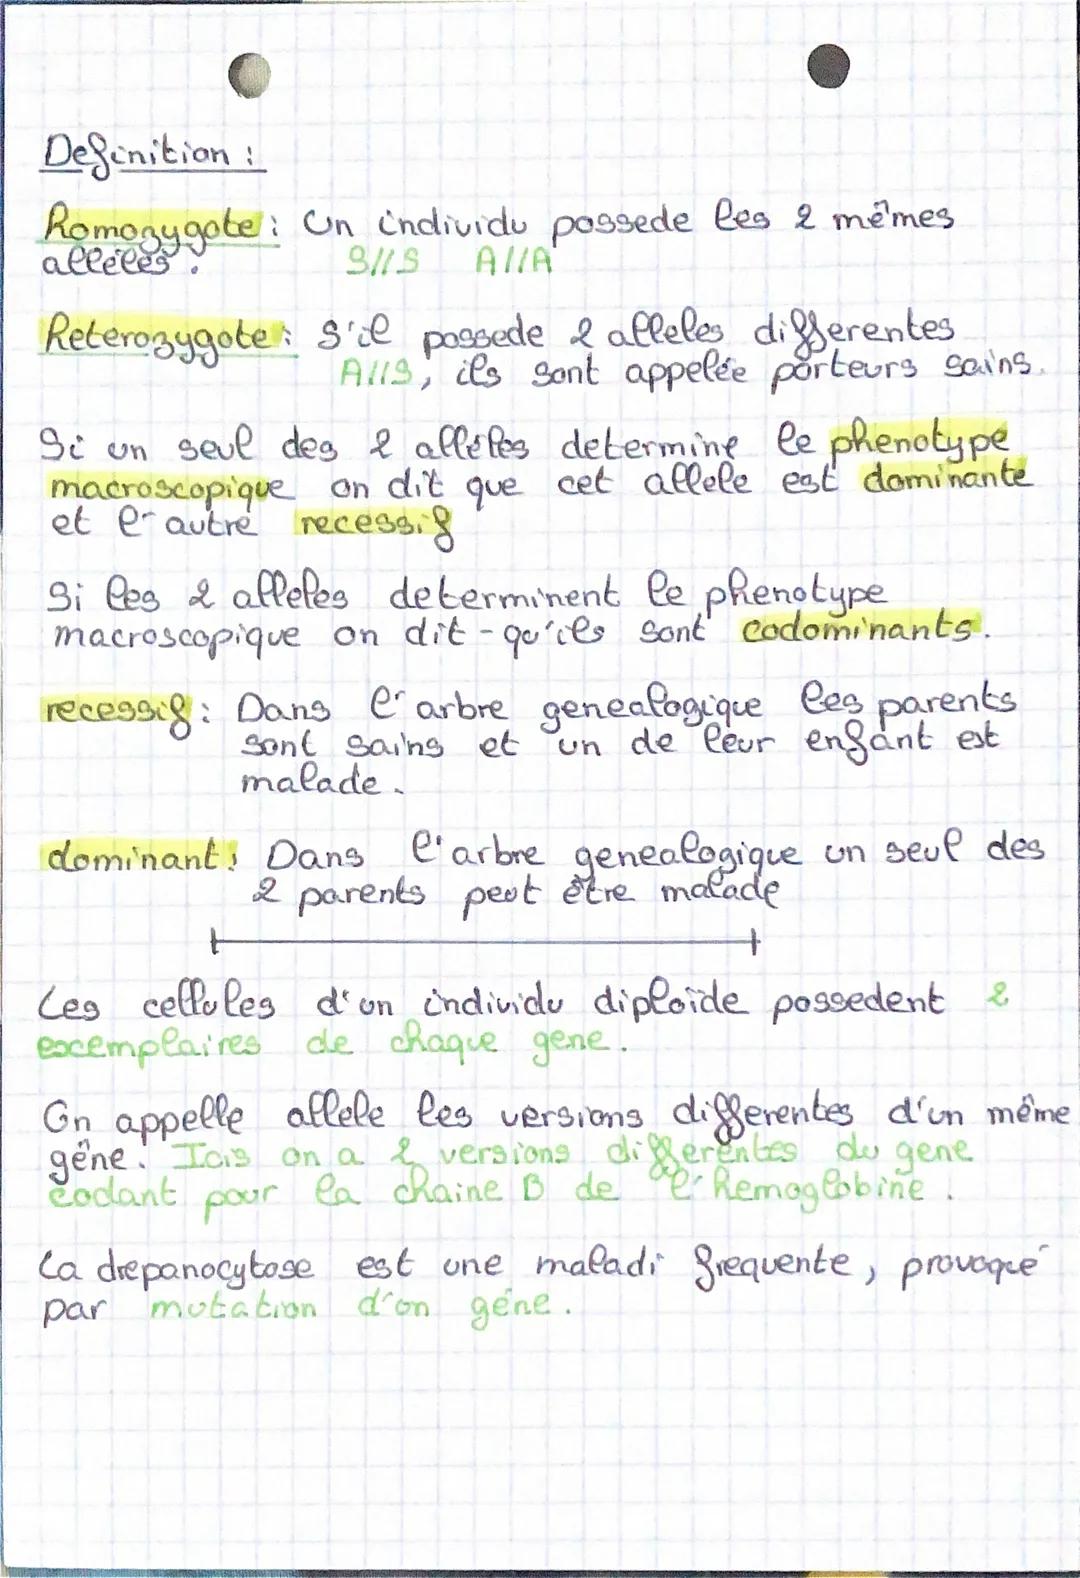 Definition :
Homozygote : Un individu possede les 2 mêmes
alléles. S//S A//A
Heterozygote : S'il possede 2 alleles differentes
A//S, ils sont appelée porteurs sains.
Si un seul des 2 alléles determine le phenotype
macroscopique on dit que cet allele est dominante
et l'autre recessif
Si les 2 alleles determinent le phenotype
macroscopique on dit-qu'ils sont codominants.
recessif : Dans l'arbre genealogique les parents
sont sains et un de leur enfant est
malade.
dominant : Dans l'arbre genealogique un seul des
2 parents peut être malade
Les cellules d'un individu diploïde possedent 2
excemplaires de chaque gene.
On appelle allele les versions differentes d'un même
gêne. Icis on a 2 versions differentes du gene
codant pour la chaine B de l'hemoglobine.
La drepanocytose est une maladi frequente, provoqué
par mutation d'un géne.